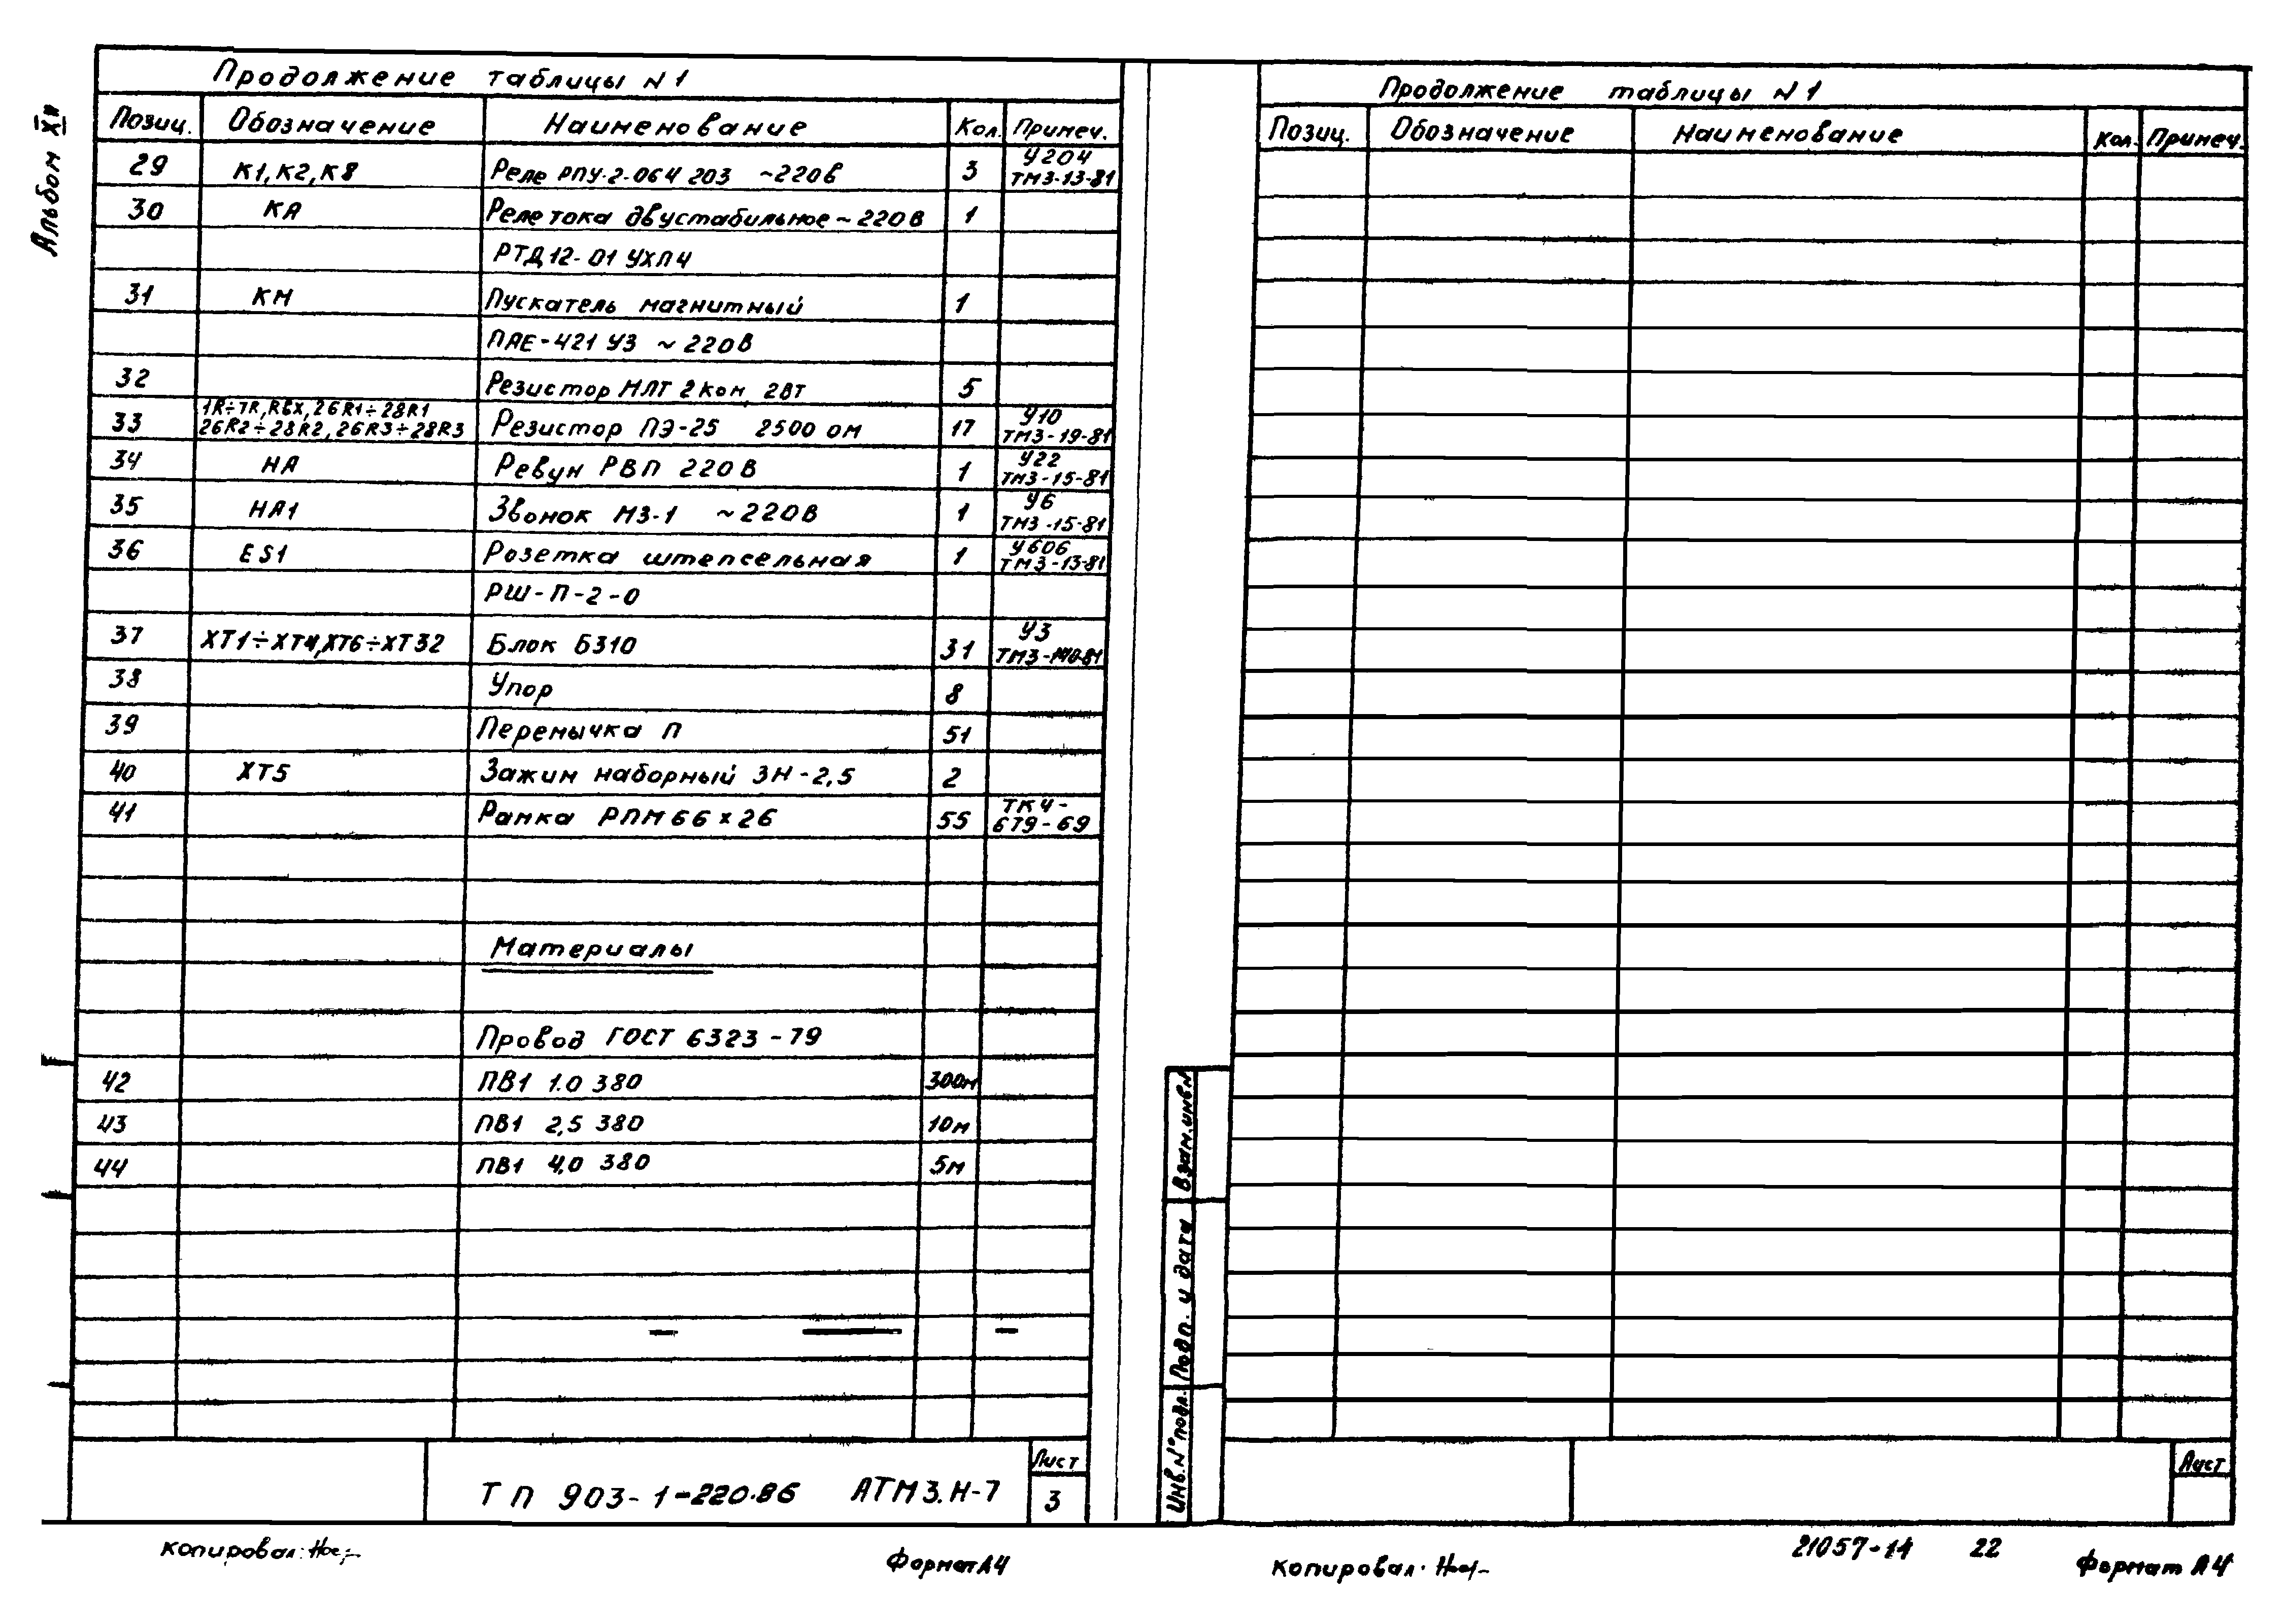 Альбом XII
Продолжение таблицы N1
Позиц. Обозначение Наименование Кол. Примеч.
29 К1, К2, К8 Реле РПУ-2-064 203 ~220В 3 У204 ТМ3-13-81
30 КА Реле тока двустабильное ~220В 1
РТД12-01 УХЛ4
31 КМ Пускатель магнитный 1
ПАЕ-421 У3 ~220В
32 Резистор МЛТ 2 ком, 2вт 5
33 1R÷7R, Rвх, 26R1÷28R1 26R2÷28R2, 26R3÷28R3 Резистор ПЭ-25 2500 ом 17 У10 ТМ3-19-81
34 НА Ревун РВП 220В 1 У22 ТМ3-15-81
35 НА1 Звонок МЗ-1 ~220В 1 У6 ТМ3-15-81
36 ES1 Розетка штепсельная 1 У606 ТМ3-13-81
РШ-П-2-0
37 ХТ1÷ХТ4, ХТ6÷ХТ32 Блок Б310 31 У3
38 Упор 8
39 Перемычка П 51
40 ХТ5 Зажим наборный ЗН-2,5 2
41 Рамка РПМ 66х26 55 ТК4-679-69
Материалы
Провод ГОСТ 6323-79
42 ПВ1 1.0 380 300м
43 ПВ1 2,5 380 10м
44 ПВ1 4,0 380 5м
ТП 903-1-220.86 АТМ3.Н-7
Лист
3
копировал:
Формат А4
Продолжение таблицы N1
Позиц. Обозначение Наименование Кол. Примеч.
Взам.инв.N
Подп. и дата
Инв.N° подл.
Лист
копировал.
21057-14 22
Формат А4